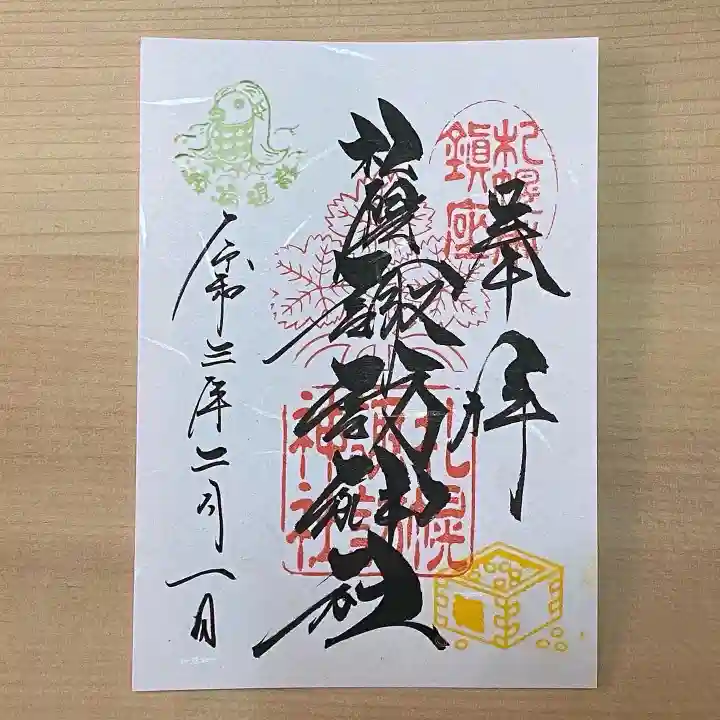 奉拝
札幌鎮座
札幌諏訪神社
札幌諏訪神社
令和三年二月一日